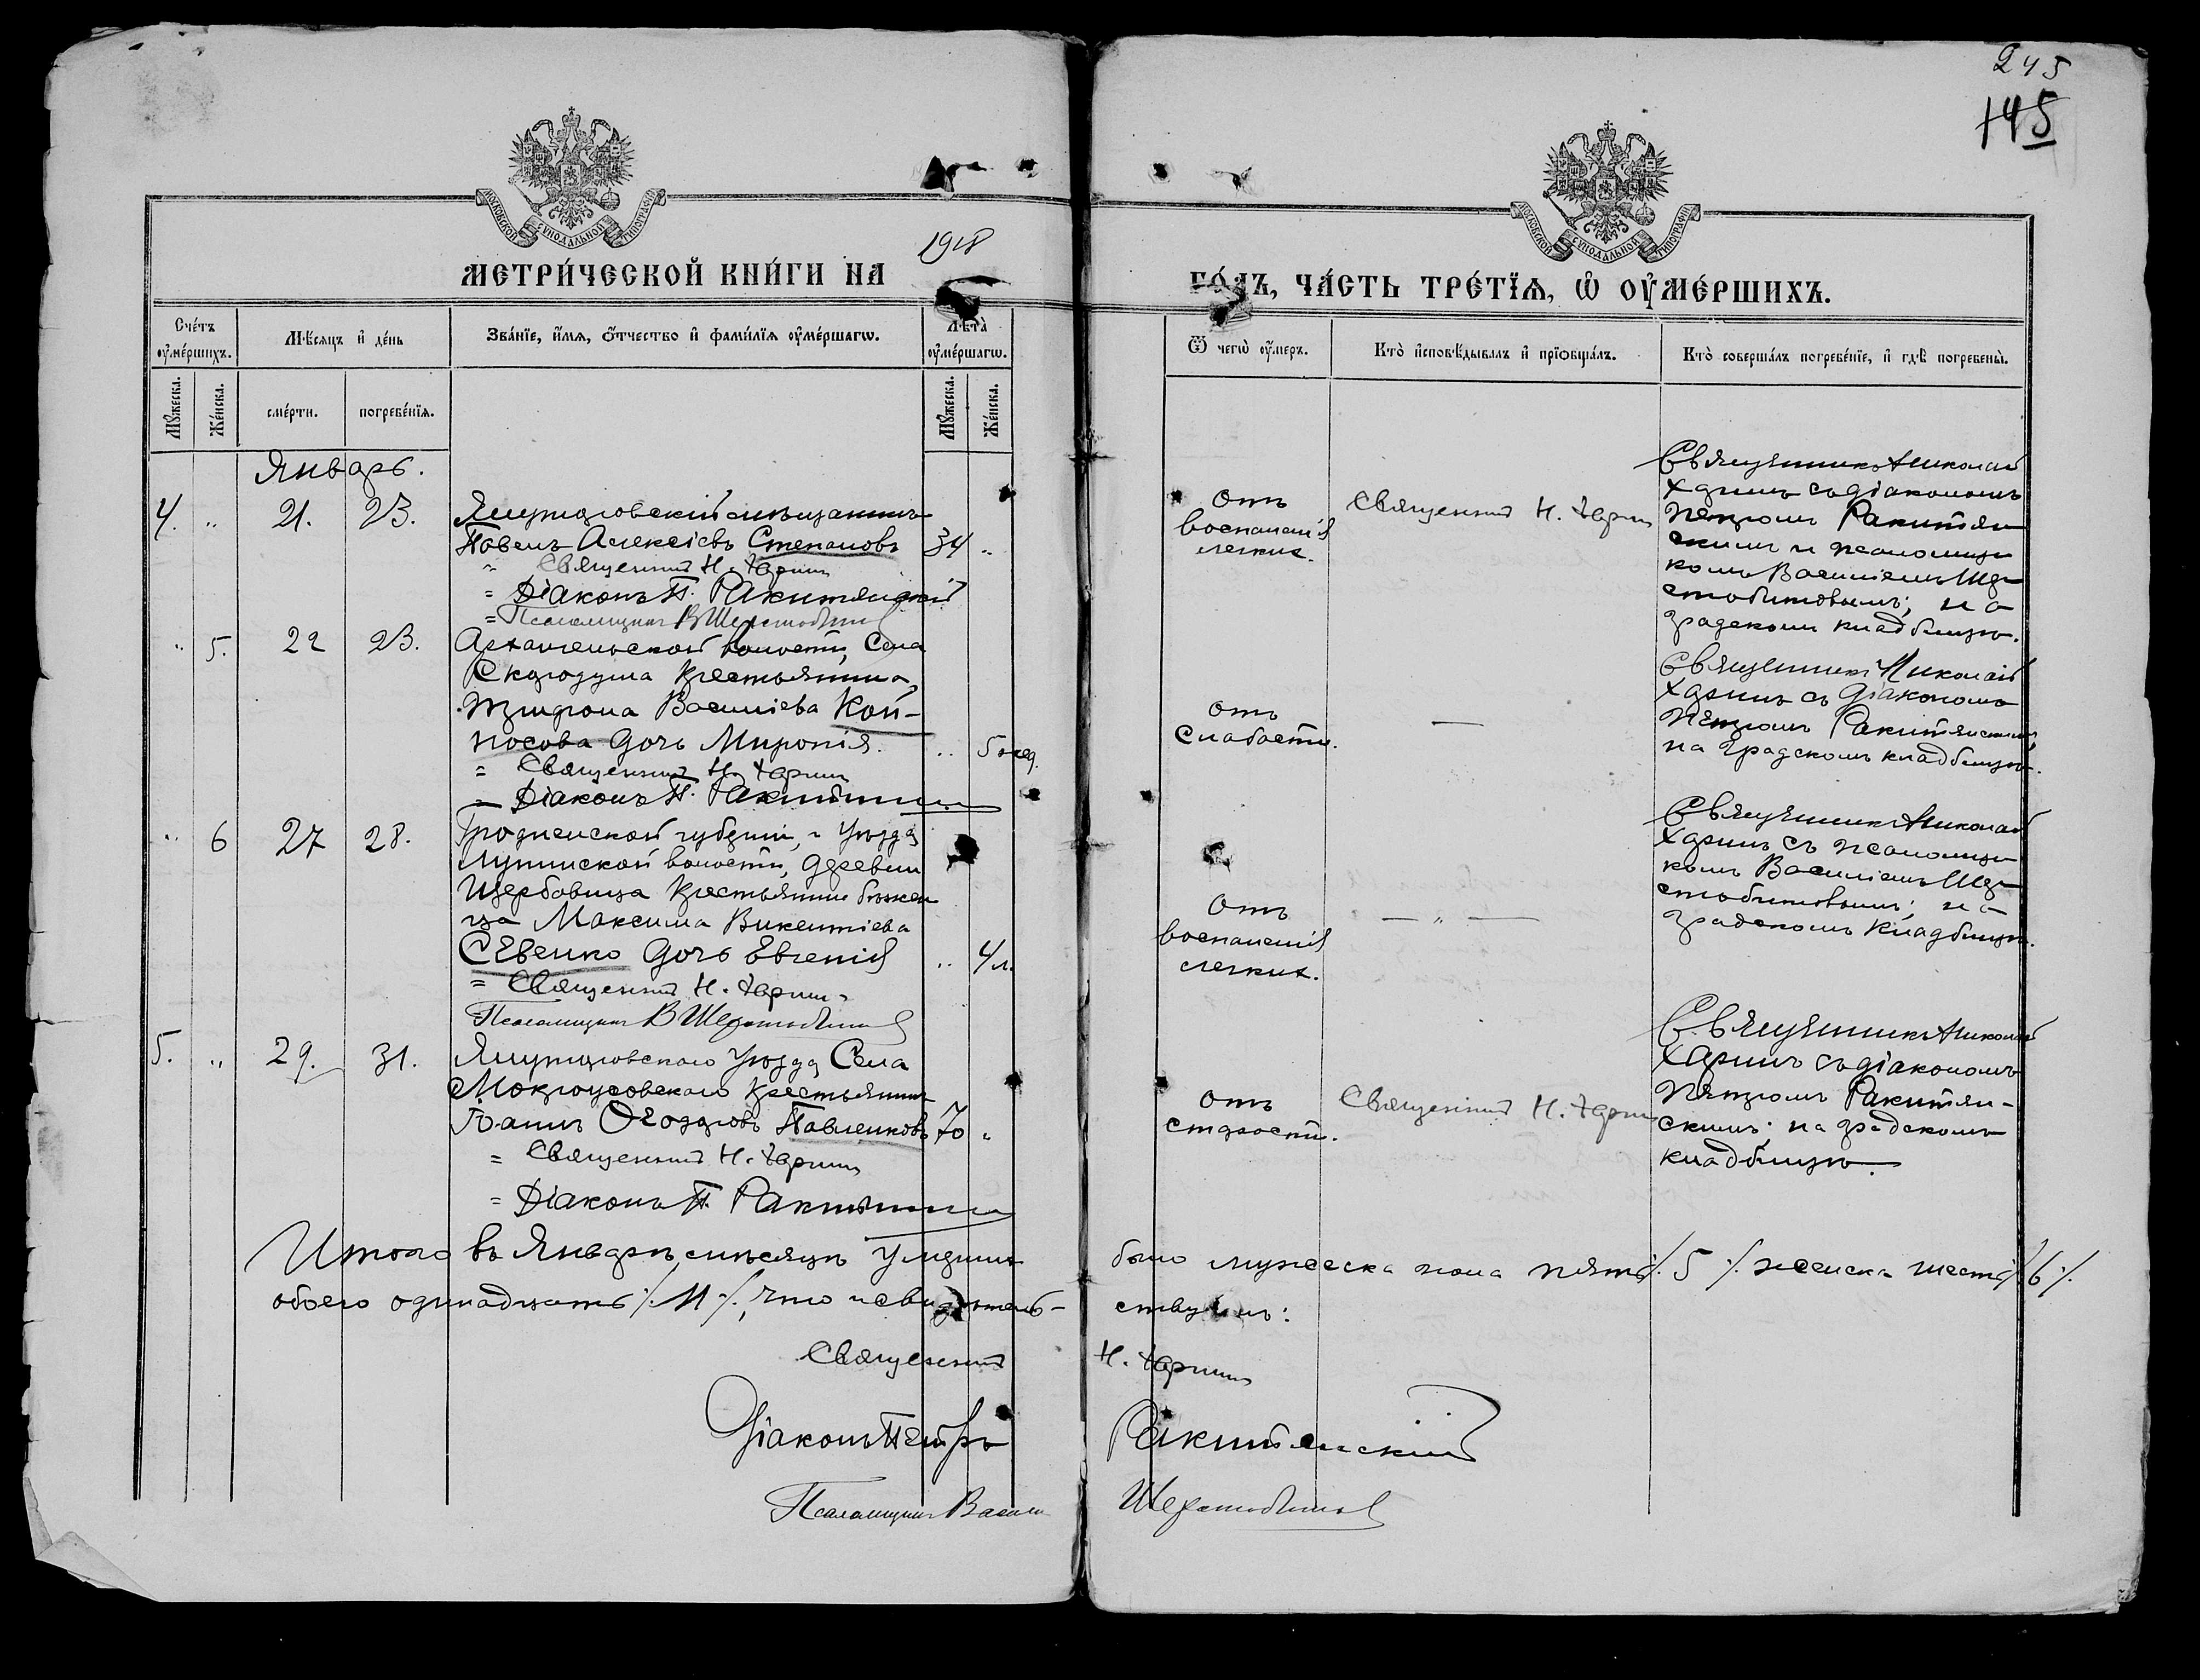 245
145
МОСКОВСКОЙ СѴНОДАЛЬНОЙ ТИПОГРАФІИ
МОСКОВСКОЙ СѴНОДАЛЬНОЙ ТИПОГРАФІИ
МЕТРИ́ЧЕСКОЙ КНИ́ГИ НА 1918 ГО́ДЪ, ЧА́СТЬ ТРЕ́ТЇѦ, Ѡ҆ ОУ҆МЕ́РШИХЪ.
Сче́тъ оу҆ме́ршихъ.
Мѣ́сяцъ и҆ де́нь
Зва́нїе, и҆́мѧ, ѻ҆́тчество и҆ фами́лїѧ оу҆ме́ршагѡ.
Лѣ́та оу҆ме́ршагѡ.
Ѿ чегѡ̀ оу҆́меръ.
Кто̀ и҆сповѣ́дывалъ и҆ прїѡбща́лъ.
Кто̀ соверша́лъ погребе́нїе, и҆ гдѣ̀ погребены̀.
Мꙋ́жеска.
Же́нска.
сме́рти.
погребе́нїѧ.
Мꙋ́жеска.
Же́нска.
Январь.
4. " 21. 23.
Ялуторовскій мѣщанинъ
Павелъ Алексіевъ Степановъ 34 "
" Священникъ Н. Харинъ
= Діаконъ П. Ракитянскій
= Псаломщикъ В Шерстобитовъ
Отъ
воспаленія
легкихъ.
Священникъ Н. Харинъ
Священникъ Николай
Харинъ съ діакономъ
Петромъ Ракитян
скимъ и псаломщи
комъ Василіемъ Шер
стобитовымъ; на
градскомъ кладбищѣ.
" 5. 22 23.
Архангельской волости, Села
Скородума крестьянина
Трифона Василіева Кой-
носова дочь Миропія. " 5 нед.
= Священникъ Н. Харинъ
= Діаконъ П. Ракитянскій
Отъ
Слабости.
—
Священникъ Николай
Харинъ съ діакономъ
Петромъ Ракитянскимъ,
на градскомъ кладбищѣ.
" 6 27 28.
Гродненской губерніи, и уѣзда
волости, деревни
крестьянина бѣжен
ца Максима Викентіева
Севенко дочь Евгенія " 4 л.
= Священникъ Н. Харинъ
Псаломщикъ В Шерстобитовъ
Отъ
воспаленія
легкихъ.
— " —
Священникъ Николай
Харинъ съ псаломщи
комъ Василіемъ Шер
стобитовымъ; на
градскомъ кладбищѣ.
5. " 29. 31.
Ялуторовскаго уѣзда Села
Мокроусовскаго крестьянинъ
Іоаннъ Ѳеодоровъ Павленковъ 70 "
= Священникъ Н. Харинъ
= Діаконъ П. Ракитянскій
Отъ
старости.
Священникъ Н. Харинъ
Священникъ Николай
Харинъ съ діакономъ
Петромъ Ракитян-
скимъ; на градскомъ
кладбищѣ.
Итого въ Январѣ мѣсяцѣ умерших было мужеска пола пять ٪ 5 ٪ женска шесть ٪ 6 ٪
обоего одинадцать ٪ 11 ٪, что и свидѣтель-ствуемъ:
Священникъ Н. Харинъ
Діаконъ Петръ Ракитянскій
Псаломщикъ Василій Шерстобитовъ